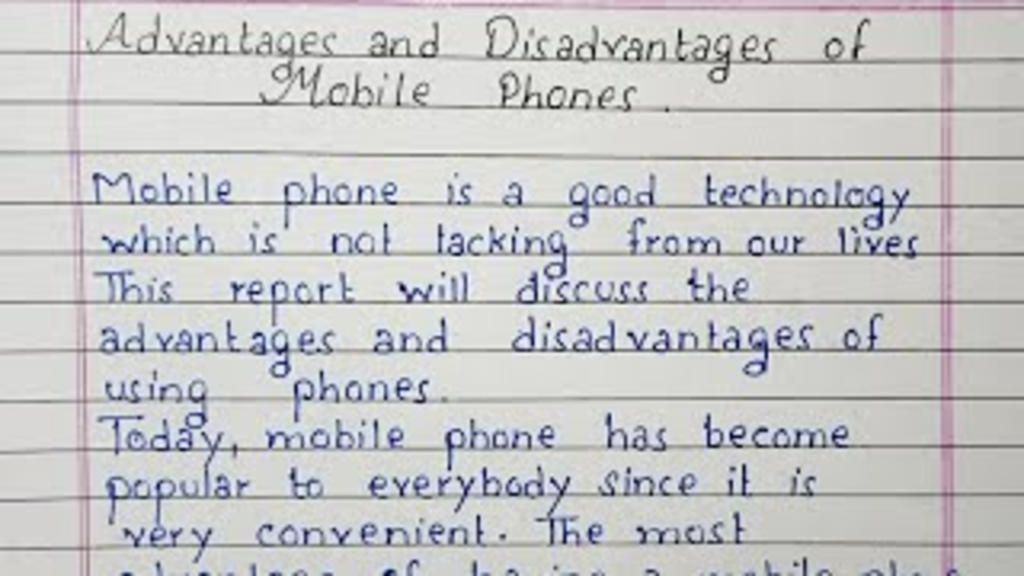 Advantages and Disadvantages of
Mobile Phones.
Mobile phone is a good technology
which is not lacking from our lives
This report will discuss the
advantages and disadvantages of
using phones.
Today, mobile phone has become
popular to everybody since it is
very convenient. The most
advantage of having a mobile phone